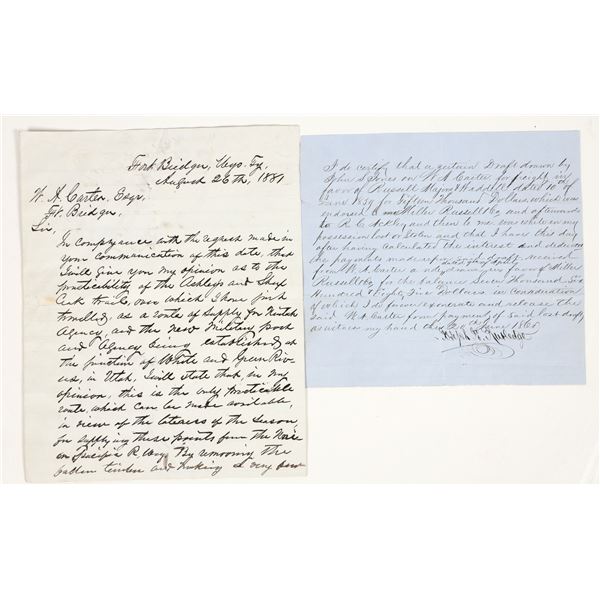 Fort Bridger, Wyo. Ty.
August 26th, 1881
W. A. Carter, Esqr,
Ft. Bridger,
Sir,
In complyance with the request made in
your communication of this date, that
I will give you my opinion as to the
practicibility of the Ashley and
trails, over which I have just
travelled, as a route of supply for Uintah
Agency, and the new Military post
and Agency being established at
the junction of White and Green Riv-
ers, in Utah, I will state that in my
opinion, this is the only practicable
route, which can be made available,
in view of the lateness of the season
for supplying these points from the Union
Pacific R. Way. By removing the
fallen timber and making a very few
I do certify that a certain Draft drawn by
John S. Jones on W. A. Carter for freight in
favor of Russell Majors & Waddell dated 10th of
June 1859 for Fifteen Thousand Dollars, which was
endorsed Miller Russell & Co and afterwards
to R. C. and then to me was while in my
possession lost or stolen and that I have this day
after having calculated the interest and deducted
the payments made received
from W. A. Carter a in favor of Miller
Russell & Co for the balance Seven Thousand Six
Hundred & Eighty Five Dollars in Consideration
of which I do forever exonerate and release the
Said W. A. Carter from payment of said lost draft
as witness my hand this June 1860